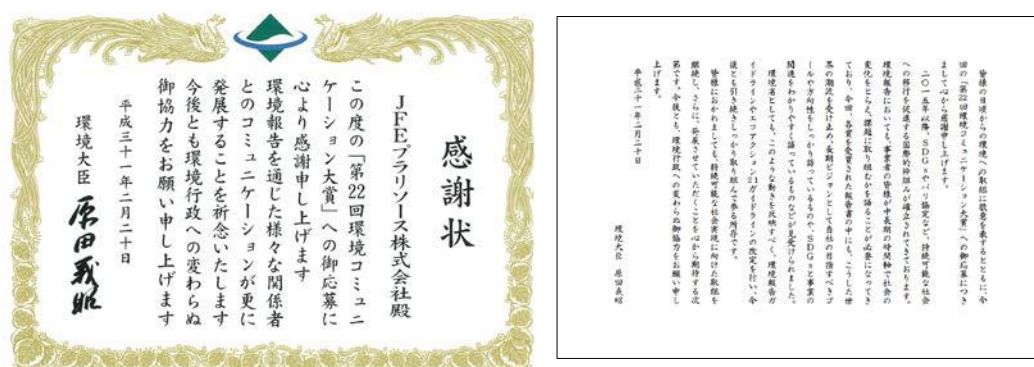 感謝状
JFEプラリソース株式会社殿
この度の「第22回環境コミュニ
ケーション大賞」への御応募に
心より感謝申し上げます
環境報告を通じた様々な関係者
とのコミュニケーションが更に
発展することを祈念いたします
今後とも環境行政への変わらぬ
御協力をお願い申し上げます
平成三十一年二月二十日
環境大臣 原田義昭
皆様の日頃からの環境への取組に敬意を表するとともに、今
回の「第22回環境コミュニケーション大賞」への御応募につき
まして心から感謝申し上げます。
二〇一五年以降、SDGsやパリ協定など、持続可能な社会
への移行を促進する国際的枠組みが確立されてきております。
環境報告においても、事業者の皆様が中長期の時間軸で社会の
変化をとらえ、課題に取り組むかを語ることが必要になってき
ており、今回、各賞を受賞された報告書の中にも、こうした世
界の潮流を受け止め、長期ビジョンとして自社の目指すべきゴ
ールや方向性をしっかり語っているものや、SDGsと事業の
関連をわかりやすく語っているものなどが見受けられました。
環境省としても、このような動きを反映すべく、環境報告ガ
イドラインやエコアクション21ガイドラインの改定を行い、今
後とも引き続きしっかり取り組んで参る所存です。
皆様におかれましても、持続可能な社会実現に向けた取組を
継続し、さらに、発展させていただくことを心から期待する次
第です。今後とも、環境行政への変わらぬ御協力をお願い申し
上げます。
平成三十一年二月二十日
環境大臣 原田義昭